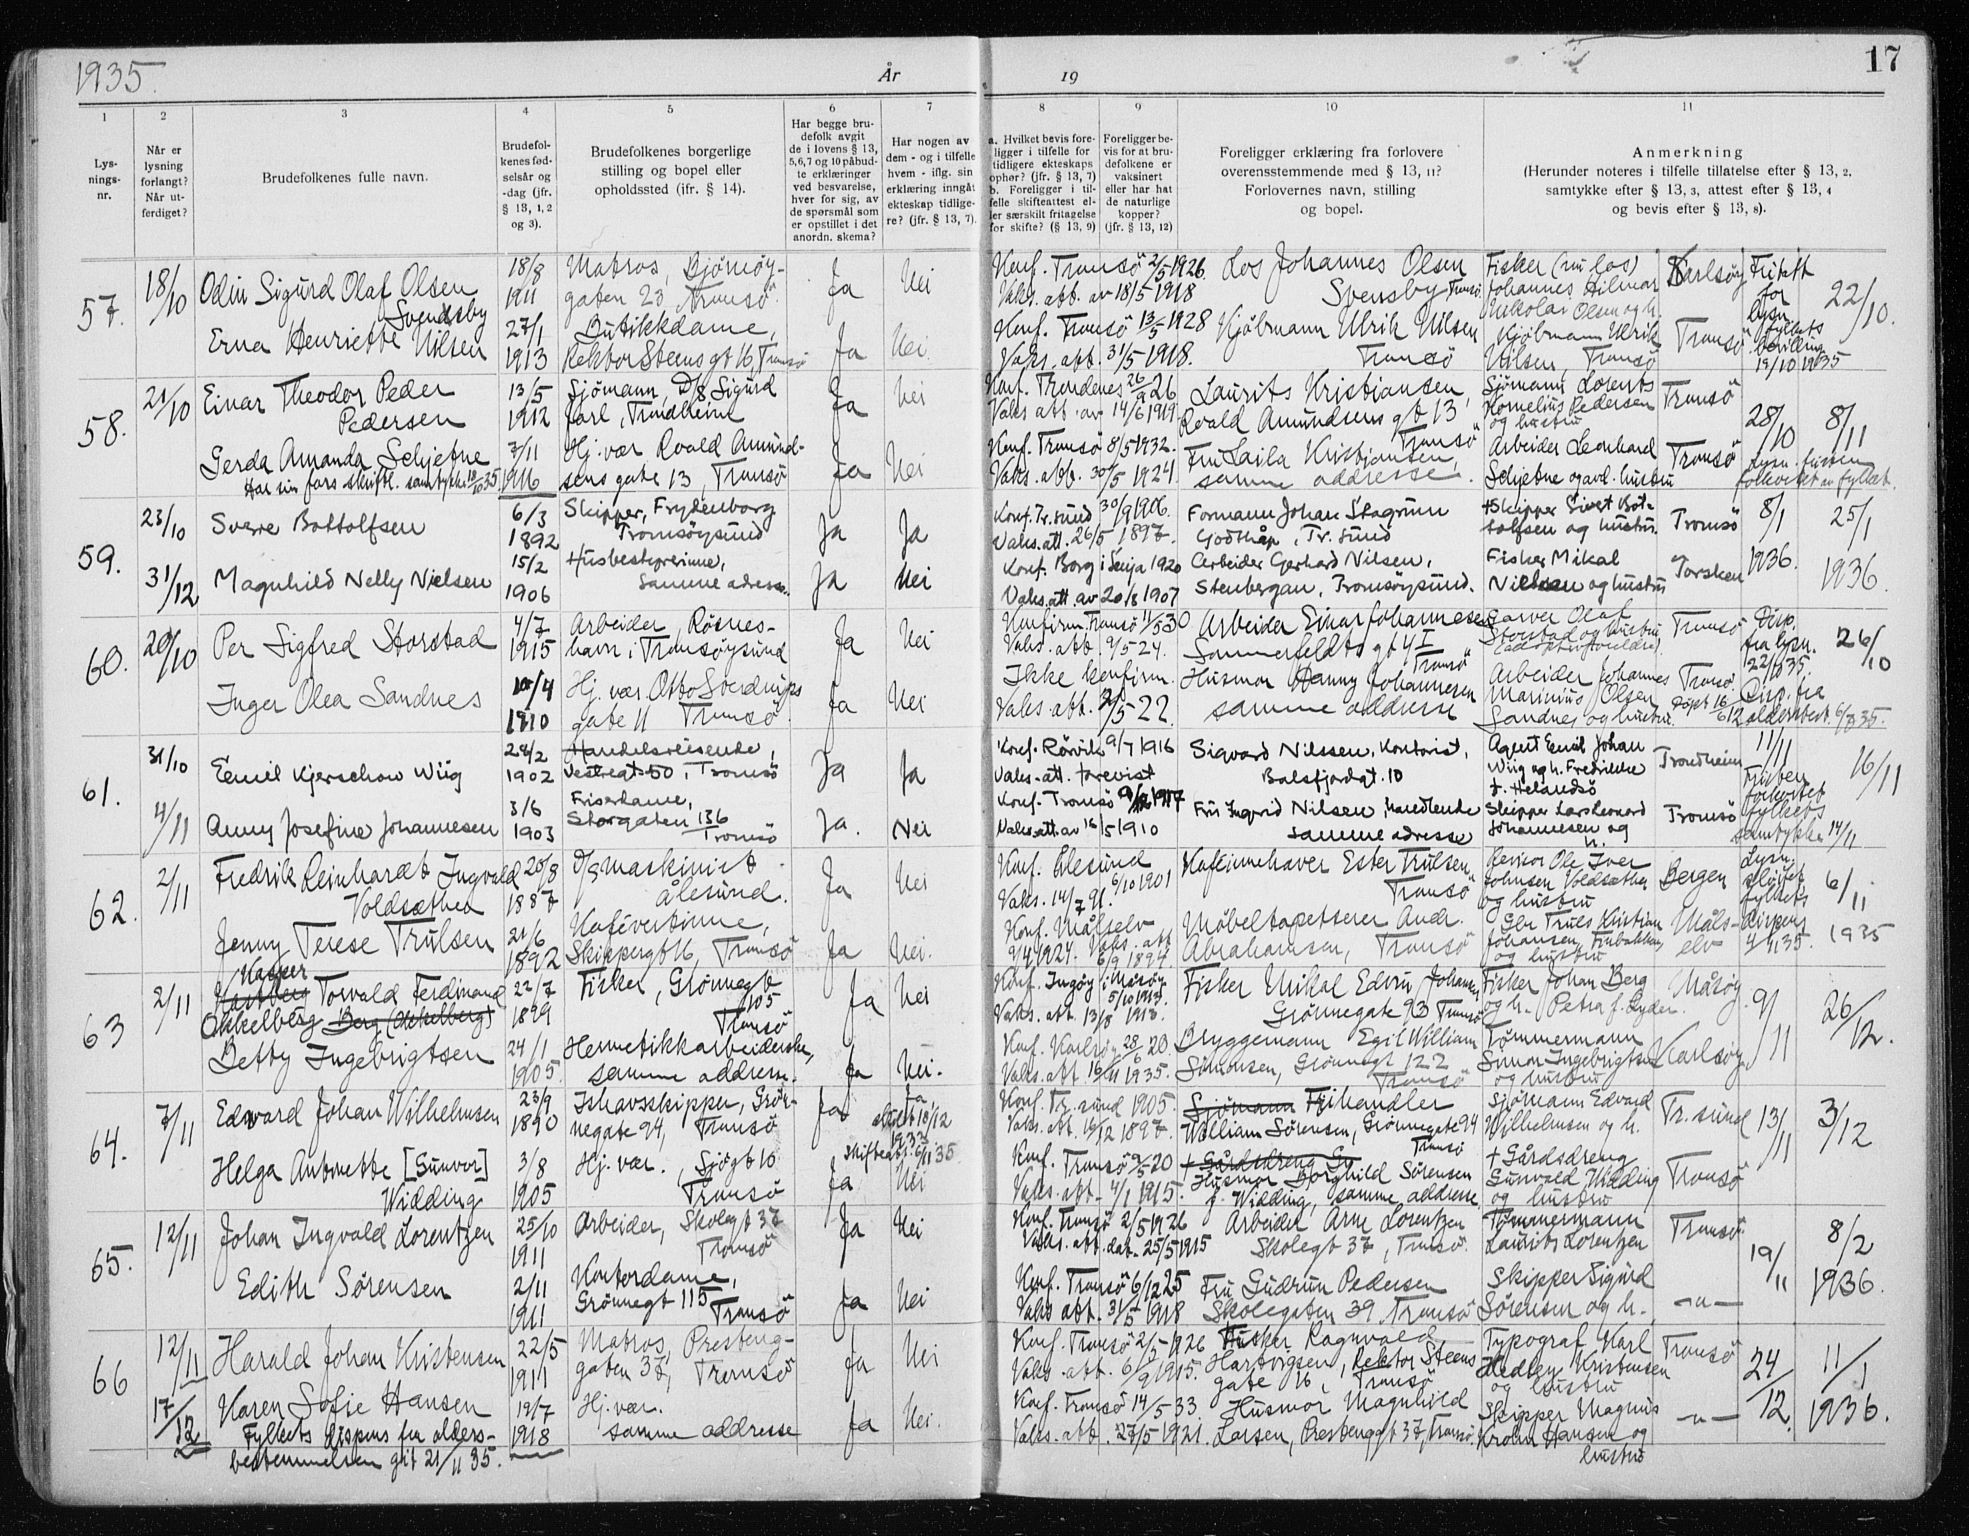 1935.
År
19
17
1
2
3
4
5
6
7
8
9
10
11
Lys-
nings-
nr.
Når er
lysning
forlangt?
Når ut-
ferdiget?
Brudefolkenes fulle navn.
Brudefol-
kenes fød-
selsår og
-dag (jfr.
§ 13, 1, 2
og 3).
Brudefolkenes borgerlige
stilling og bopel eller
opholdssted (ifr. § 14).
Har begge bru-
defolk avgit
de i lovens § 13,
5,6,7 og 10 påbud-
te erklæringer
ved besvarelse,
hver for sig, av
de spørsmål som
er opstillet i det
anordn. skema?
Har nogen av
dem - og i tilfelle
hvem - iflg. sin
erklæring inngått
ekteskap tidlige-
re? (jfr. § 13, 7).
a. Hvilket bevis fore-
ligger i tilfelle for
tidligere ekteskaps
ophør? (jfr. § 13, 7)
b. Foreligger i til-
felle skifteattest el-
ler særskilt fritagelse
for skifte? (§ 13, 9)
Foreligger be-
vis for at bru-
defolkene er
vaksinert
eller har hat
de naturlige
kopper?
(jfr. § 13, 12)
Foreligger erklæring fra forlovere
overensstemmende med § 13, 11?
Forlovernes navn, stilling
og bopel.
Anmerkning
(Herunder noteres i tilfelle tillatelse efter § 13, 2,
samtykke efter § 13, 3, attest efter § 13, 4
og bevis efter § 13, 8).
57.
18/10
Odin Sigurd Olaf Olsen
Svendsby
18/8
1911
Matros, Bjørnøy-
gaten 23, Tromsö.
Ja
Nei
Konf. Tromsö 2/5 1926.
Vaks. att. av 18/5 1918
Los Johannes Olsen
Svensby Tromsö.
Fisker (nu los)
Johannes Hilmar
Nikolai Olsen og h.
Karlsöy
Fritatt
for
lysn.
fylkets
bevilling
15/10 1935
22/10.
Erna Henriette Nilsen
27/1
1913
Butikkdame,
Rektor Steens gt 16, Tromsö
Ja
Nei.
Konf. Tromsö 13/5 1928
Vaks. att. 31/5 1918.
Kjøbmann Ulrik Nilsen
Tromsö
Kjøbmann Ulrik
Nilsen, Tromsö
Tromsö
58.
21/10
Einar Theodor Peder
Pedersen
13/5
1912
Sjømann, D/S Sigurd
Jarl, Trondheim
Ja
Nei
Konf. Trondenes 26/9 26
Vaks att. av 14/6 1919.
Laurits Kristiansen,
Roald Amundsens gt 13
Tromsö
Sjømann Lorents
Kornelius Pedersen
og hustru
Tromsö
28/10
8/11
Gerda Amanda Schjetne
Har sin fars skriftl. samtykke 18/10 35
3/11
1916
Hj. vær. Roald Amund-
sens gate 13, Tromsö
Ja
Nei
Konf. Tromsö 8/5 1932.
Vaks. att. 30/5 1924.
Fru Laila Kristiansen,
samme addresse.
Arbeider Leonhard
Schjetne og avd. hustru
Tromsö
Lysn. fristen
forkortet av fylket.
59.
23/10
31/12
Sverre Bottolfsen
6/3
1892
Skipper, Frydenborg
Tromsøysund
Ja
Ja
Konf. Tr. sund 30/9 1906.
Vaks. att. 26/5 1897.
Formann Johan Skogrum
Godthåp, Tr. sund
+Skipper Sivert Bot-
tolfsen og hustru.
Tromsö
8/1
1936.
25/1
1936.
Magnhild Nelly Nielsen
15/2
1906
Husbestyrerinne,
samme adresse.
Ja
Nei
Konf. Borg i Senja 1920
Vaks. att. av 20/8 1907
Arbeider Gerhard Nilsen,
Stenbergan, Tromsøysund.
Fisker Mikal
Nielsen og hustru
Torsken
60.
20/10
Per Sigfred Storstad
4/7
1915
Arbeider, Røsnes-
havn i Tromsöysund
Ja
Nei
Konfirm. Tromsö 11/5 30
Vaks. att. 9/5 24.
Arbeider Einar Johannesen
Sommerfeldts gt 4 I
Tromsö
Garver Olaf
Storstad og hustru
(adoptivforeldre)
Tromsö
Disp.
fra lysn.
22/10 35.
26/10
Inger Olea Sandnes
1910
Hj. vær. Otto Sverdrups
gate 11 Tromsö.
Ja
Nei
Ikke konfirm.
Vaks. att. 22.
Husmor Hanny Johannesen
samme addresse
Arbeider Johannes
Marinius Olsen
Sandnes og hustru.
Tromsö.
Disp. fra
aldersbest. 35.
61.
31/10
4/11
Eemil Kjerschow Wiig
1902
Handelsreisende,
Vestregt 50, Tromsö
Ja
Ja
Konf. Rørvik 9/7 1916
Vaks. att. forevist
Sigvard Nilssen, Kontorist,
Balsfjordgt. 10
Agent Eemil Johan
Wiig og h. Fredrikke
f. Helandsö
Trondheim
11/11
Fristen
forkortet
fylkets
samtykke 14/11
16/11
Anny Josefine Johannesen
3/6
1903
Friserdame,
Storgaten 136
Tromsö
Ja.
Nei
Konf. Tromsö 1917
Vaks. att. av 16/5 1910
Fru Ingrid Nilsen, Handlende
samme adresse
Skipper Lars Leonard
Johannesen og
h.
Tromsö
62.
2/11
Fredrik Reinhardt Ingvald
Voldsæther
20/8
1887
D/S maskinist
Ålesund.
Ja
Nei
Konf. Ålesund
6/10 1901
Vaks. 14/7 91.
Kaféinnehaver Ester Trulsen
Tromsö
Revisor Ole Iver
Johnsen Voldsæther
og hustru
Bergen
Lysn.
sløifet
fylkets
dispens
4/11 35.
6/11
1935
Jenny Terese Trulsen
21/6
1892
Kafévertinne,
Skippergt 16, Tromsö
Ja
Nei.
Konf. Målselv
9/4 1924. Vaks. att.
6/9 1894.
Möbeltapetserer Andr.
Abrahamsen, Tromsö
Gbr Truls Kristian
Johansen, Finbakken,
og hustru
Måls-
elv
63
2/11
Kasper
Torvald Ferdinand
Okkelberg Berg (Okkelberg)
22/7
1899
Fisker, Grønnegt
105
Tromsö
Ja
Nei
Konf. Ingøy i Måsøy
5/10 1913.
Vaks. att. 13/8 1913.
Fisker Mikal Edvin Johansen
Grønnegate 93 Tromsö
Fisker Johan Berg
og h. Petra f. Lyder.
Måsøy.
9/11
26/12.
Betty Ingebrigtsen
24/1
1905.
Hermetikkarbeiderske,
samme addresse.
Ja
Nei.
Konf. Karlsøy 28/6 20.
Vaks. att. 16/11 1935.
Bryggemann Egil William
Simonsen, Grønnegt 122
Tromsö
Tømmermann
Simon Ingebrigtsen
og hustru
Karlsöy
64.
7/11
Edvard Johan Wilhelmsen
23/9
1890
Ishavsskipper, Grøn-
negate 94, Tromsö
Ja
Ja
1933
skifteatt. 6/11 35.
Konf. Tr. sund 1905.
Vaks. att. 16/12 1897.
Sjømann Frihandler
William Sörensen, Grønnegate 94
Tromsö
Sjømann Edvard
Wilhelmsen og h.
Tr. sund
13/11
3/12
Helga Antonette [Gunvor]
Widding
3/8
1905
Hj. vær. Sjøgt 10
Tromsö
Ja
Nei
Konf. Tromsö 20
Vaks. att. 4/1 1915.
+ Gårdsdreng Gu
Husmor Borghild Sörensen
f. Widding, samme addresse
+ Gårdsdreng
Gunvald Widding
og hustru
Tromsö
65.
12/11
Johan Ingvald Lorentzen
25/10
1911
Arbeider, Skolegt 37
Tromsö
Ja
Nei
Konf. Tromsö 2/5 1926
Vaks. att. dat. 25/5 1915
Arbeider Arne Lorentzen
Skolegt 37, Tromsö.
Tømmermann
Laurits Lorentzen
Tromsö
19/11
8/2
1936.
Edith Sørensen
2/11
1911
Kontordame,
Grönnegt 115
Tromsö
Ja
Nei
Konf. Tromsö 6/12 25
Vaks att. 31/5 1918
Fru Gudrun Pedersen
Skolegaten 39, Tromsö
Skipper Sigurd
Sörensen og h.
-"-
66
12/11
17/12
Harald Johan Kristensen
22/5
1911
Matros, Presteng-
gaten 37, Tromsö
Ja
Nei
Konf. Tromsö 2/5 1926
Vaks. att. 6/9 1915.
Fisker Ragnvald
Hartvigsen, Rektor Steens
gate 16, Tromsö
Typograf Karl
Hedley Kristensen
og hustru
Tromsö
24/12
11/1
1936.
Karen Sofie Hansen
Fylkets dispens fra alders-
bestemmelsen git 21/11 35.
19/7
1918
Hj. vær.
samme addresse
Ja
Nei.
Konf. Tromsö 14/5 33.
Vaks. att. 27/5 1921.
Husmor Magnhild
Larsen, Prestenggt 37, Tromsö.
Skipper Magnus
Krohn Hansen og
hustru
-"-